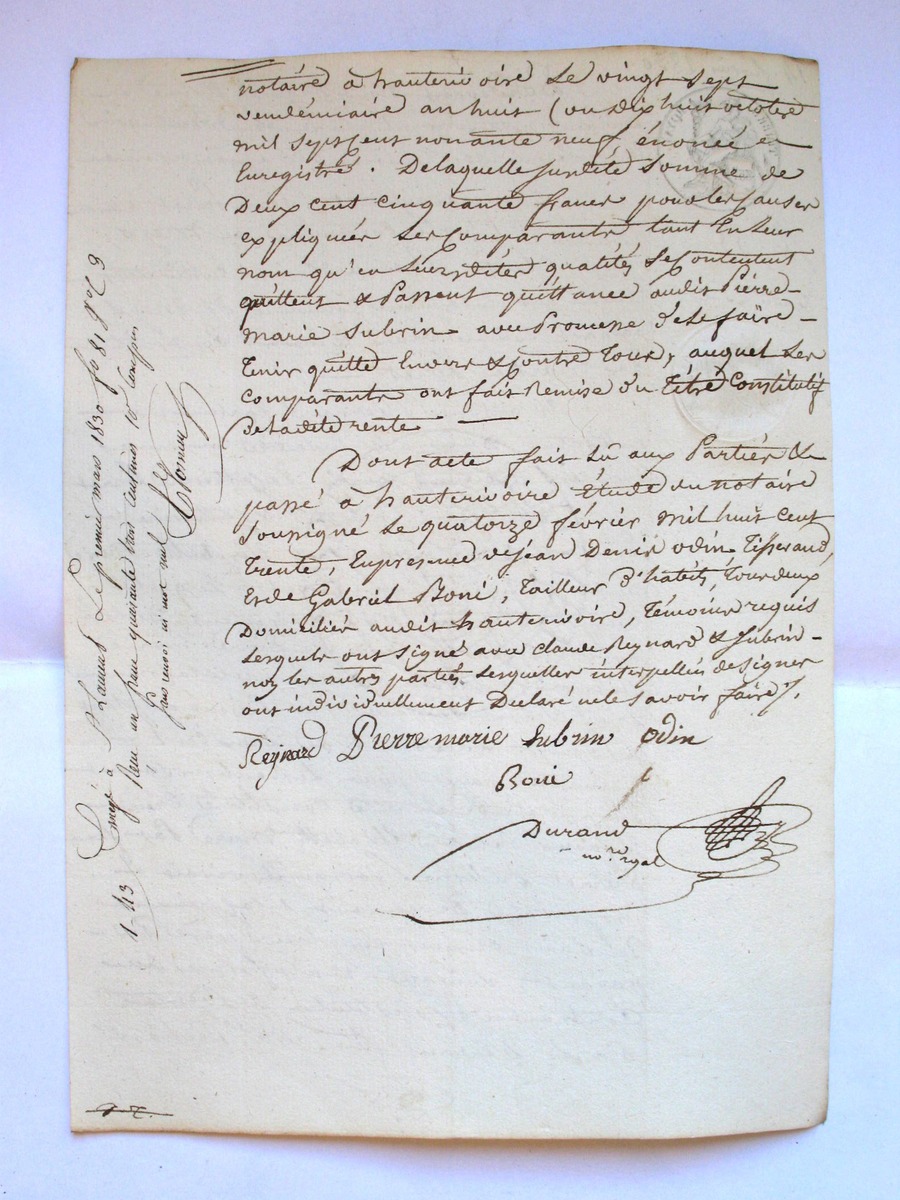 notaire à hauterivoire le vingt sept
vendémiaire an huit (ou dix huit octobre
mil sept cent nonante neuf énoncée
Enregistré. De laquelle susdite somme de
Deux cent cinquante francs pour les causes
expliquées les Comparants tant En leur
nom qu'en leursdites qualités se Contentent
quittent & Passent quittance audit Pierre
marie Subrin avec Promesse de le faire -
Tenir quitte Envers & Contre Tous, auquel les
comparants ont fait Remise du Titre Constitutif
De ladite rente —
Dont acte fait lû aux Parties &
passé à hauterivoire Etude du notaire
soussigné le quatorze février mil huit cent
trente, En presence de jean Denis odin Tisserand,
Et de Gabriel Boni, Tailleur d'habits, Tous deux
Domiciliés audit hauterivoire, Témoins requis
lesquels ont signé avec claude Reynard & Subrin -
non les autres parties lesquelles interpellés de signer
ont individuellement Declaré ne le savoir faire.
Reynard Pierre marie Subrin Odin
Boni
Durand
no.re royal
Enregé à St Laurent Le premier mars 1830 fo 81 Ro C 9
Reçu un franc quarante trois centimes 10e Compris
sans renvoi ni mot nul
1-43